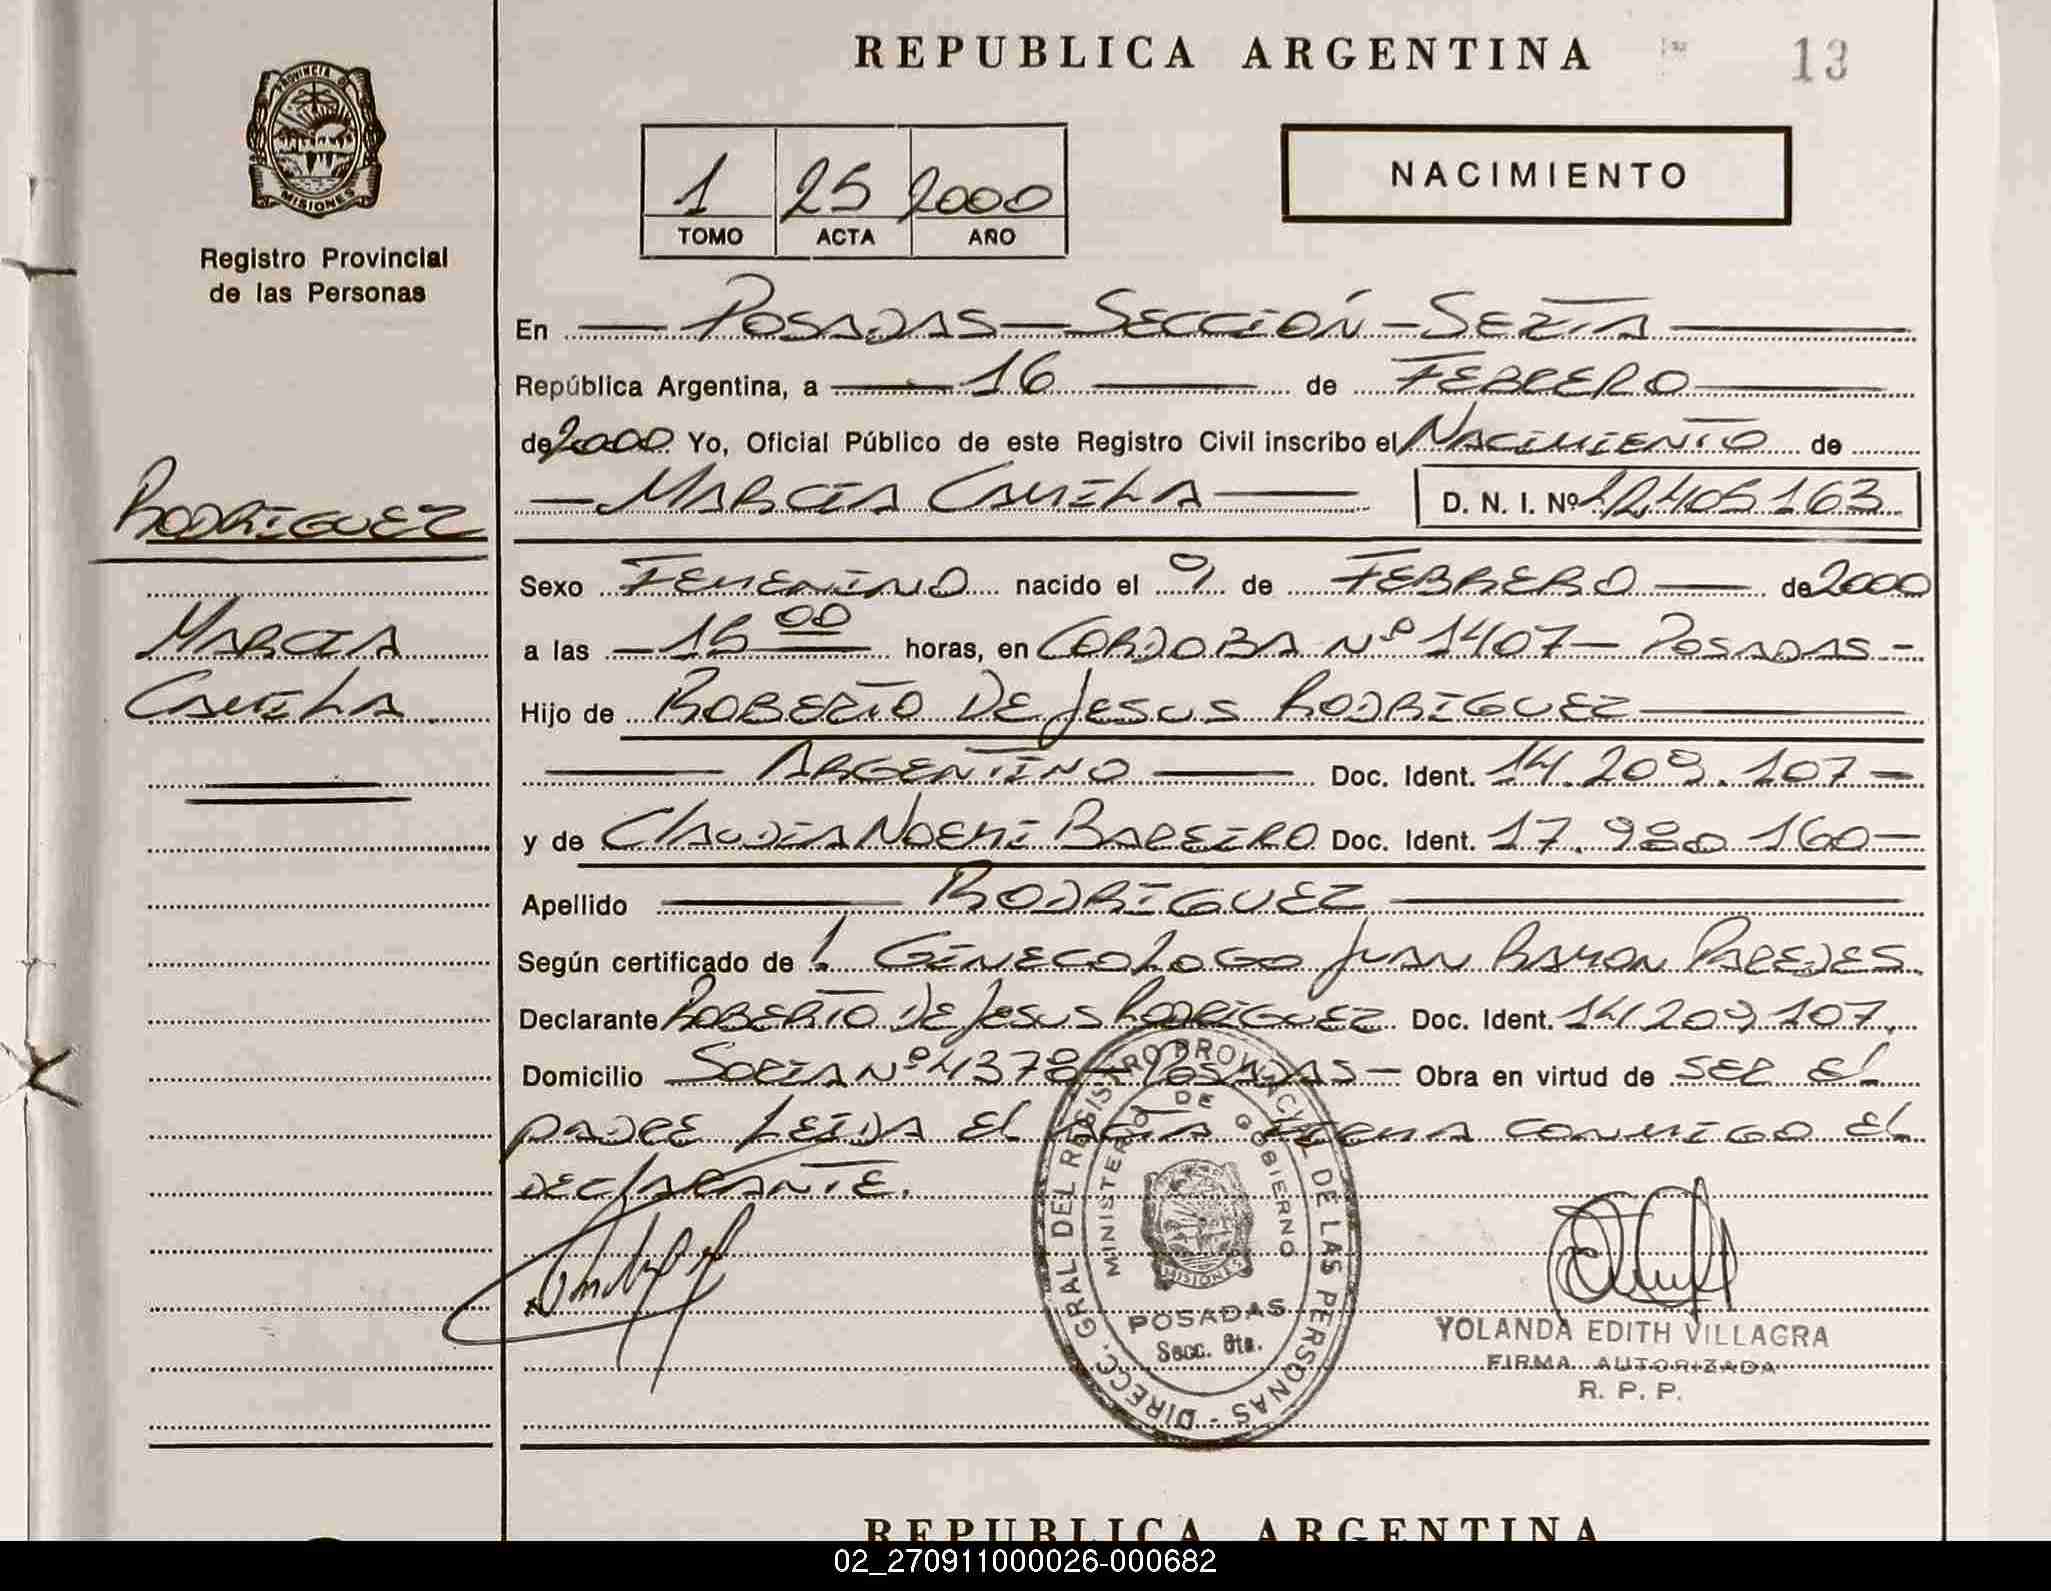 REPUBLICA ARGENTINA
13
PROVINCIA DE
MISIONES
Registro Provincial
de las Personas
1 25 2000
TOMO ACTA AÑO
NACIMIENTO
En POSADAS - SECCIÓN - SEXTA
República Argentina, a 16 de FEBRERO
de 2000 Yo, Oficial Público de este Registro Civil inscribo el NACIMIENTO de
MARCIA CAMILA D. N. I. Nº
RODRIGUEZ
MARCIA
CAMILA
Sexo FEMENINO nacido el 9 de FEBRERO de 2000
a las 15 00 horas, en CORDOBA Nº 1407 - POSADAS -
Hijo de ROBERTO DE JESUS RODRIGUEZ
ARGENTINO Doc. Ident. 14.209.107
y de CLAUDIA NOEMI BAREIRO Doc. Ident. 17.980 160
Apellido RODRIGUEZ
Según certificado de GINECOLOGO JUAN RAMON PAREDES
Declarante ROBERTO DE JESUS RODRIGUEZ Doc. Ident. 14 209 107.
Domicilio SORIA Nº 4378 - POSADAS - Obra en virtud de SER EL
PADRE LEIDA EL ACTA FIRMA CONMIGO EL
DECLARANTE.
DIRECC. GRAL DEL REGISTRO PROVINCIAL DE LAS PERSONAS -
MINISTERIO DE GOBIERNO
MISIONES
POSADAS
Secc. 6ta.
YOLANDA EDITH VILLAGRA
FIRMA AUTORIZADA
R. P. P.
REPUBLICA ARGENTINA
02_270911000026-000682